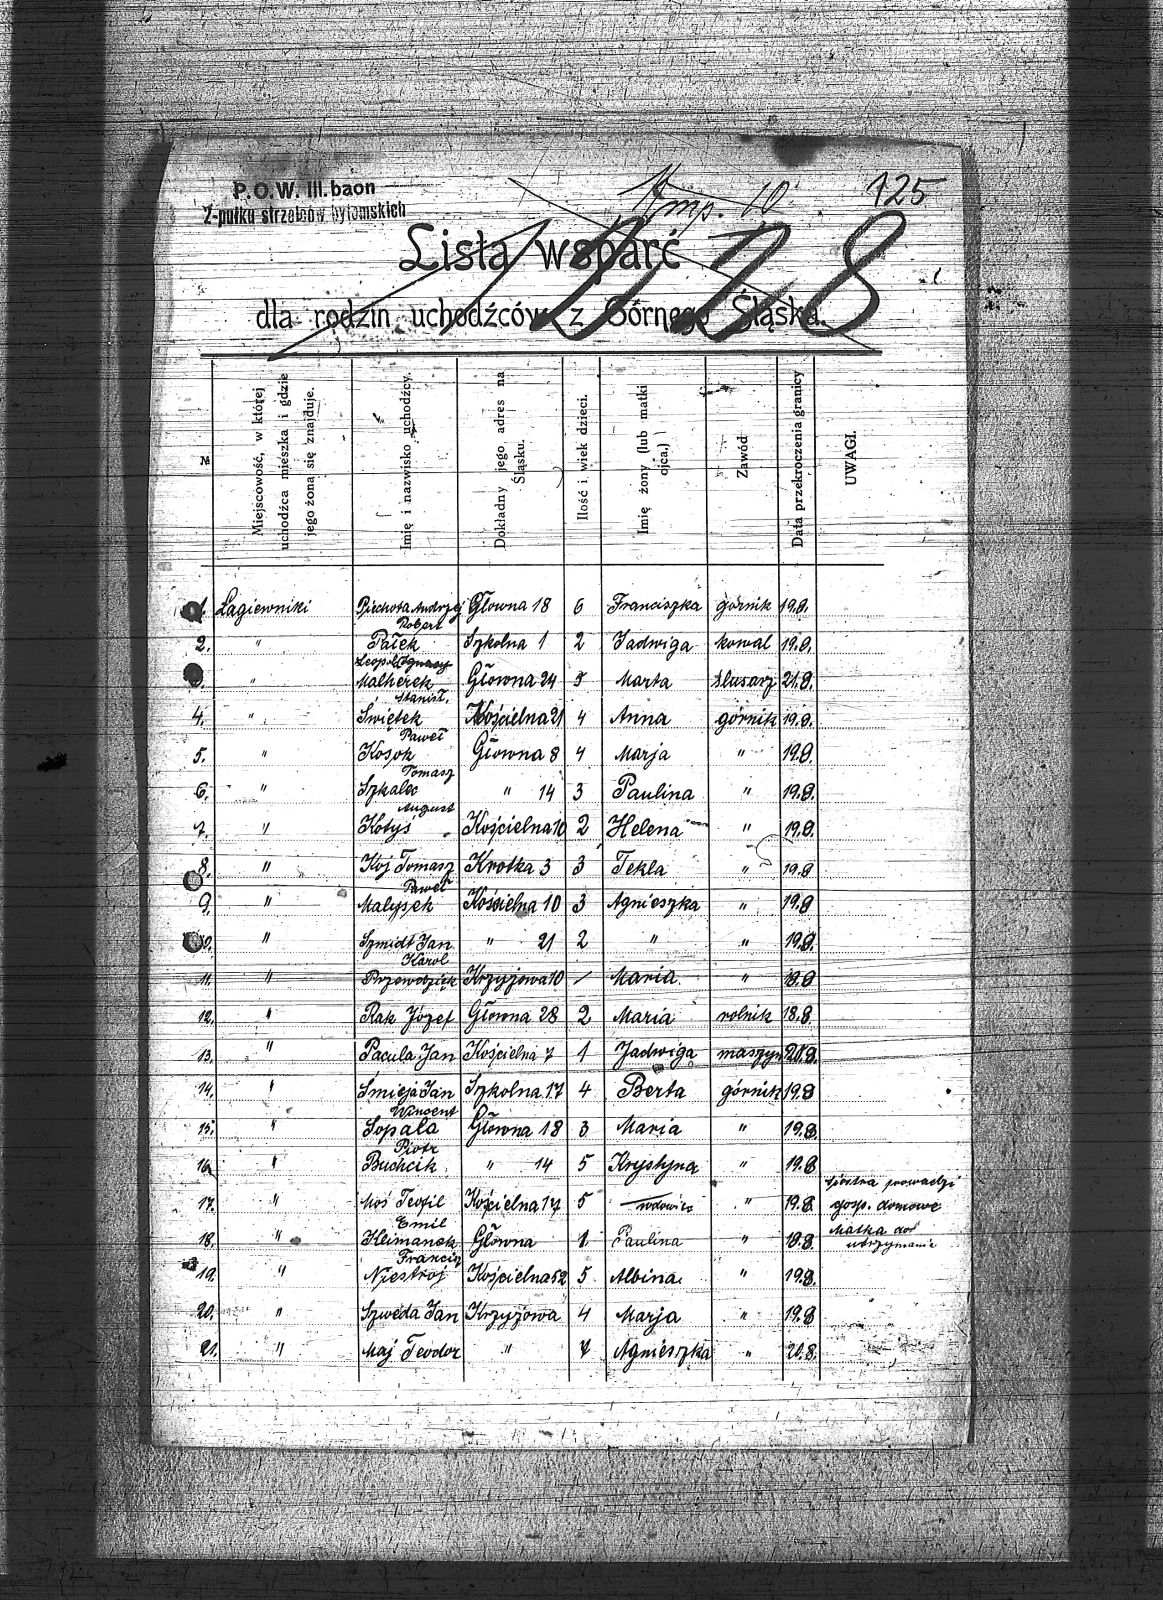 P.O.W. III. baon
2-pułku strzelców bytomskich
Kmp. 10.
125
Lista wsparć
dla rodzin uchodźców z Górnego Śląska.
№
Miejscowość, w której uchodźca mieszka i gdzie jego żona się znajduje.
Imię i nazwisko uchodźcy.
Dokładny jego adres na Śląsku.
Ilość i wiek dzieci.
Imię żony (lub matki ojca,)
Zawód
Data przekroczenia granicy
UWAGI.
1. Łagiewniki Piechota Andrzej Głowna 18 6 Franciszka górnik 19.8.
2. " Pałek Robert Szkolna 1 2 Jadwiga kowal 19.8.
" Malherek Ignacy Głowna 24 Marta ślusarz 21.8.
4. " Świętek Stanisł. Kościelna 21 4 Anna górnik 19.8.
5. " Kosok Paweł Głowna 8 4 Marja " 19.8.
6. " Szkalec Tomasz " 14 3 Paulina " 19.8.
7. " Kotyś August Kościelna 10 2 Helena " 19.8.
8. " Koj Tomasz Krotka 3 3 Tekla " 19.8
9. " Malysek Paweł Kościelna 10 3 Agnieszka " 19.8
" Szmidt Jan " 21 2 " " 19.8.
11. " Karol Krzyżowa 10 / Maria "
12. " Rak Józef Głowna 28 2 Maria rolnik 18.8
13. " Pacula Jan Kościelna 7 1 Jadwiga maszyn 21.8.
14. " Śmieja Jan Szkolna 17 4 Berta górnik 19.8
15. " Sopala Wincent Głowna 18 3 Maria " 19.8.
16. " Buchcik Piotr " 14 5 Krystyna " 19.8
17. " Moś Teofil Kościelna 17 5 wdowiec " 19.8. siostra prowadzi gosp. domowe
18. " Klimanek Emil Głowna 1 Paulina " 19.8. Matka do utrzymania
19. " Niestrój Kościelna 52 5 Albina " 19.8.
20. " Szweda Jan Krzyżowa 4 Marja " 19.8
21. " Maj Teodor " 7 Agnieszka " 20.8.